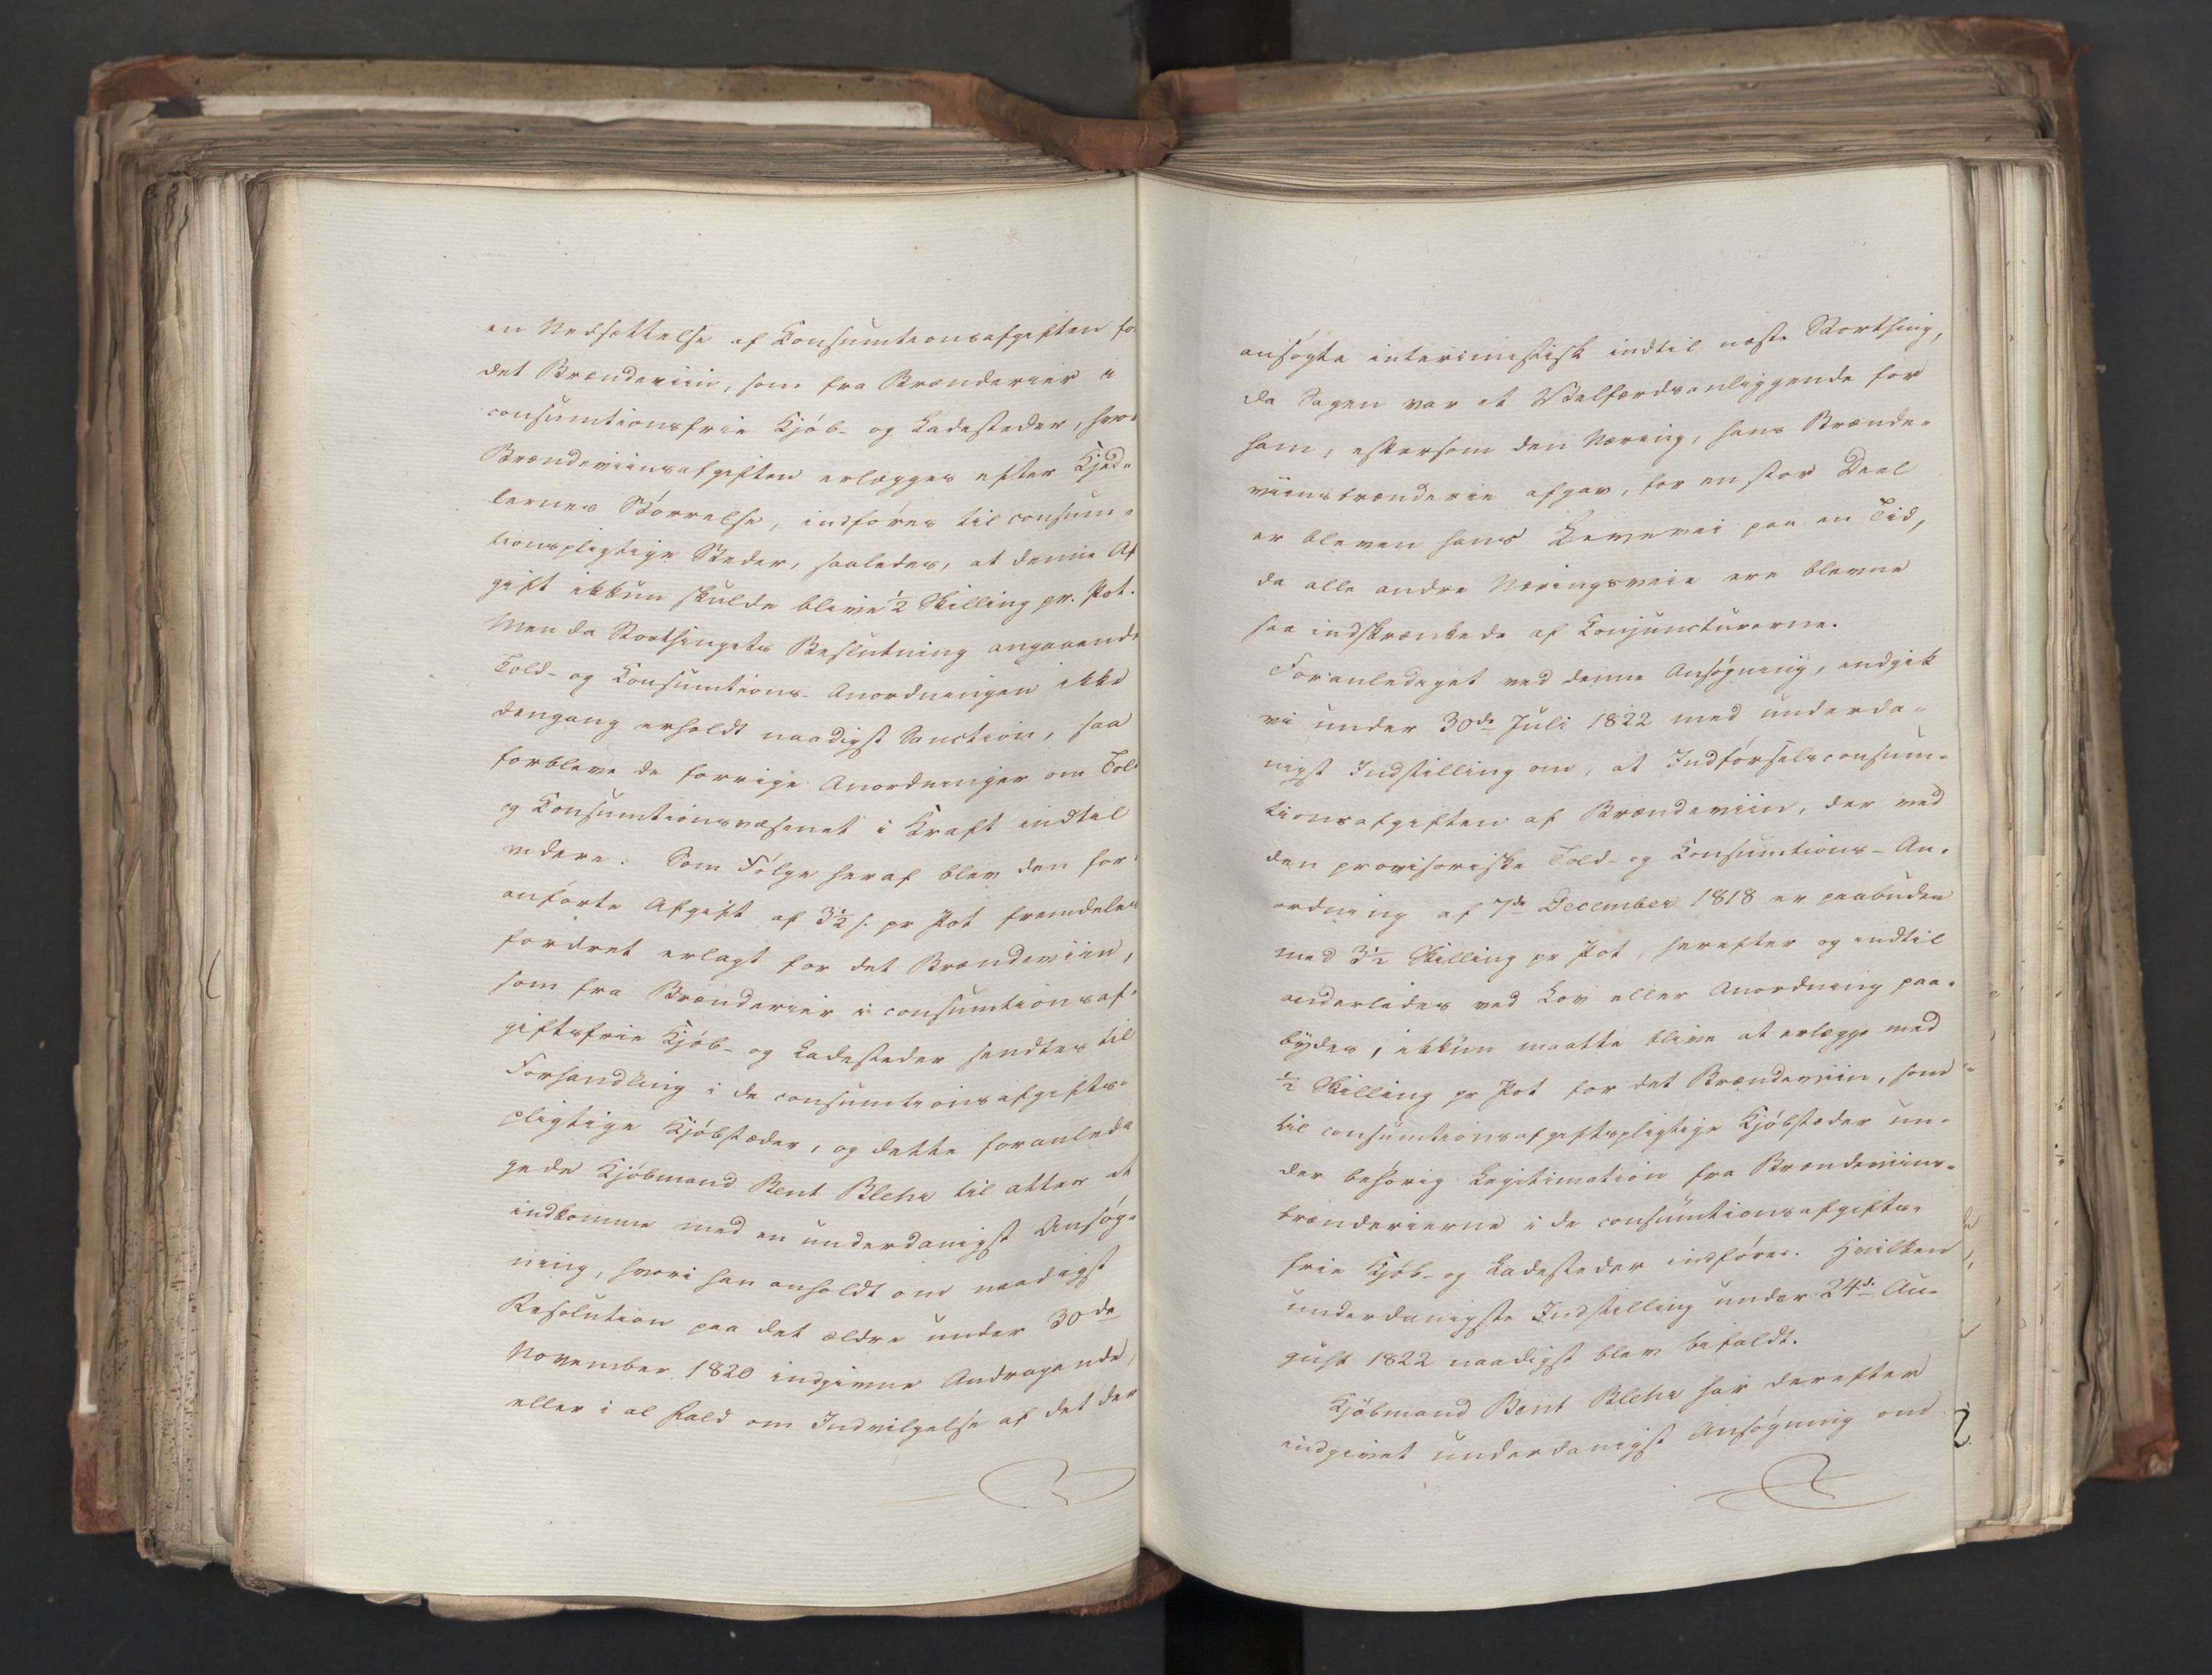 en Nedsættelse af Consumtionsafgiften for
det Brændeviin, som fra Brænderier i
consumtionsfrie Kjöb- og Ladesteder, hvor
Brændeviinsafgiften erlægges efter Kjed-
lernes Störrelse, indföres til consum-
tionspligtige Steder, saaledes, at denne Af
gift ikkun skulde blive ½ Skilling pr. Pot.
Men da Storthingets Beslutning angaaende
Told- og Consumtions-Anordningen ikke
dengang erholdt naadigst Sanction, saa
forbleve de forrige Anordninger om Told
og Consumtionsvæsenet i Kraft indtil
videre. Som Fölge heraf blev den for-
anförte Afgift af 3½ s. pr Pot fremdeles
fordret erlagt for det Brændeviin,
som fra Brænderier i consumtionsaf-
giftsfrie Kjöb- og Ladesteder sendtes til
Forhandling i de consumtionsafgifts-
pligtige Kjöbstæder, og dette foranledi
gede Kjöbmand Bent Blehr til atter at
indkomme med en underdanigst Ansög-
ning, hvori han anholdt om naadigst
Resolution paa det ældre under 30de
November 1820 indgivne Andragende,
eller i al Fald om Indvilgelse af det der
ansögte interimistisk indtil næste Storthing,
da Sagen var et Velfærdsanliggende for
ham, eftersom den Næring, hans Brænde-
viinsbrænderie afgav, for en stor Deel
er bleven hans Levevei paa en Tid,
da alle andre Næringsveie ere blevne
saa indskrænkede af Conjuncturerne.
Foranlediget ved denne Ansögning, indgik
vi under 30de Juli 1822 med underda-
nigst Indstilling om, at Indförselsconsum-
tionsafgiften af Brændeviin, der ved
den provisoriske Told- og Consumtions-An-
ordning af 7de December 1818 er paabuden
med 3½ Skilling pr Pot, herefter og indtil
anderledes ved Lov eller Anordning paa-
bydes, ikkun maatte blive at erlægge med
½ Skilling pr Pot for det Brændeviin, som
til consumtionsafgiftspligtige Kjöbstæder un-
der behörig Legitimation fra Brændeviins-
brænderierne i de consumtionsafgifts-
frie Kjöb- og Ladesteder indföres. Hvilken
underdanigste Indstilling under 24de Au-
gust 1822 naadigst blev bifaldt.
Kjöbmand Bent Blehr har derefter
indgivet underdanigst Ansögning om